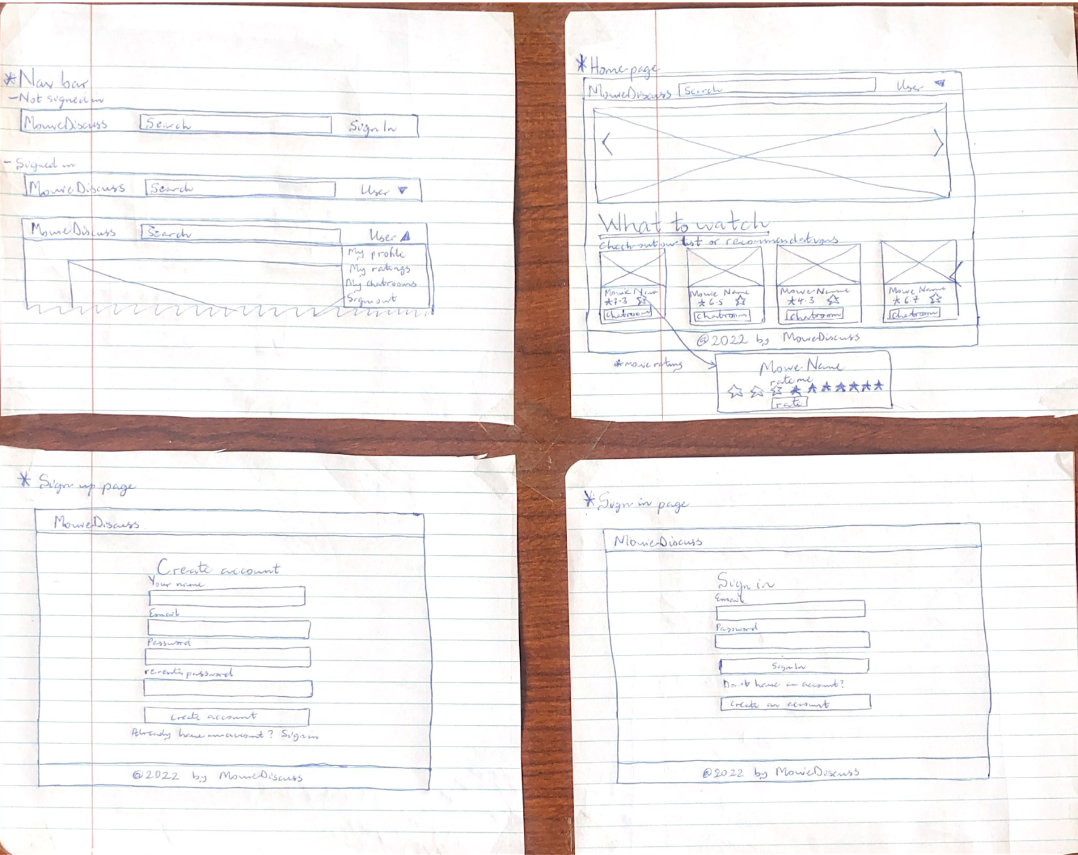 * Nav bar
- Not signed in
MovieDiscuss Search Sign In
- Signed in
MovieDiscuss Search User ▼
MovieDiscuss Search User ▲
My profile
My ratings
My chatrooms
Sign out
* Home page
MovieDiscuss Search User ▼
< >
What to watch
Check out our list or recommendations
Movie Name Movie Name Movie Name Movie Name
★ 6.5 ☆ ★ 4.3 ☆ ★ 6.7 ☆
Chatroom Chatroom Chatroom Chatroom
@2022 by MovieDiscuss
* movie rating
Movie Name
rate me
☆ ☆ ☆ ★ ★ ★ ★ ★ ★ ★
rate
* Sign up page
MovieDiscuss
Create account
Your name
Email
Password
re-enter password
create account
Already have an account? Sign in
@2022 by MovieDiscuss
* Sign in page
MovieDiscuss
Sign in
Email
Password
Sign In
Don't have an account?
create an account
@2022 by MovieDiscuss